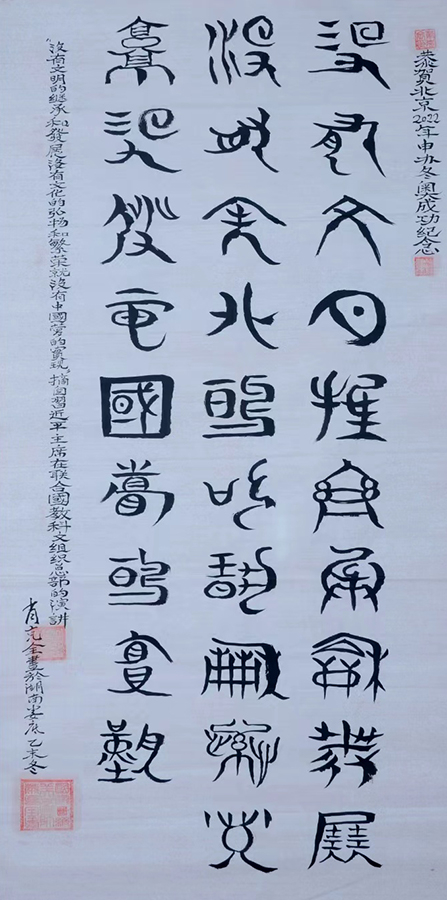 恭賀北京2022年申办冬奥成功纪念
没有文明的继承和發展
没有文化的弘扬和繁荣
就没有中國夢的實現
"没有文明的继承和發展没有文化的弘扬和繁荣就没有中國夢的實現"摘自習近平主席在联合國教科文组织总部的演讲
肖全書於湖南娄底乙未冬